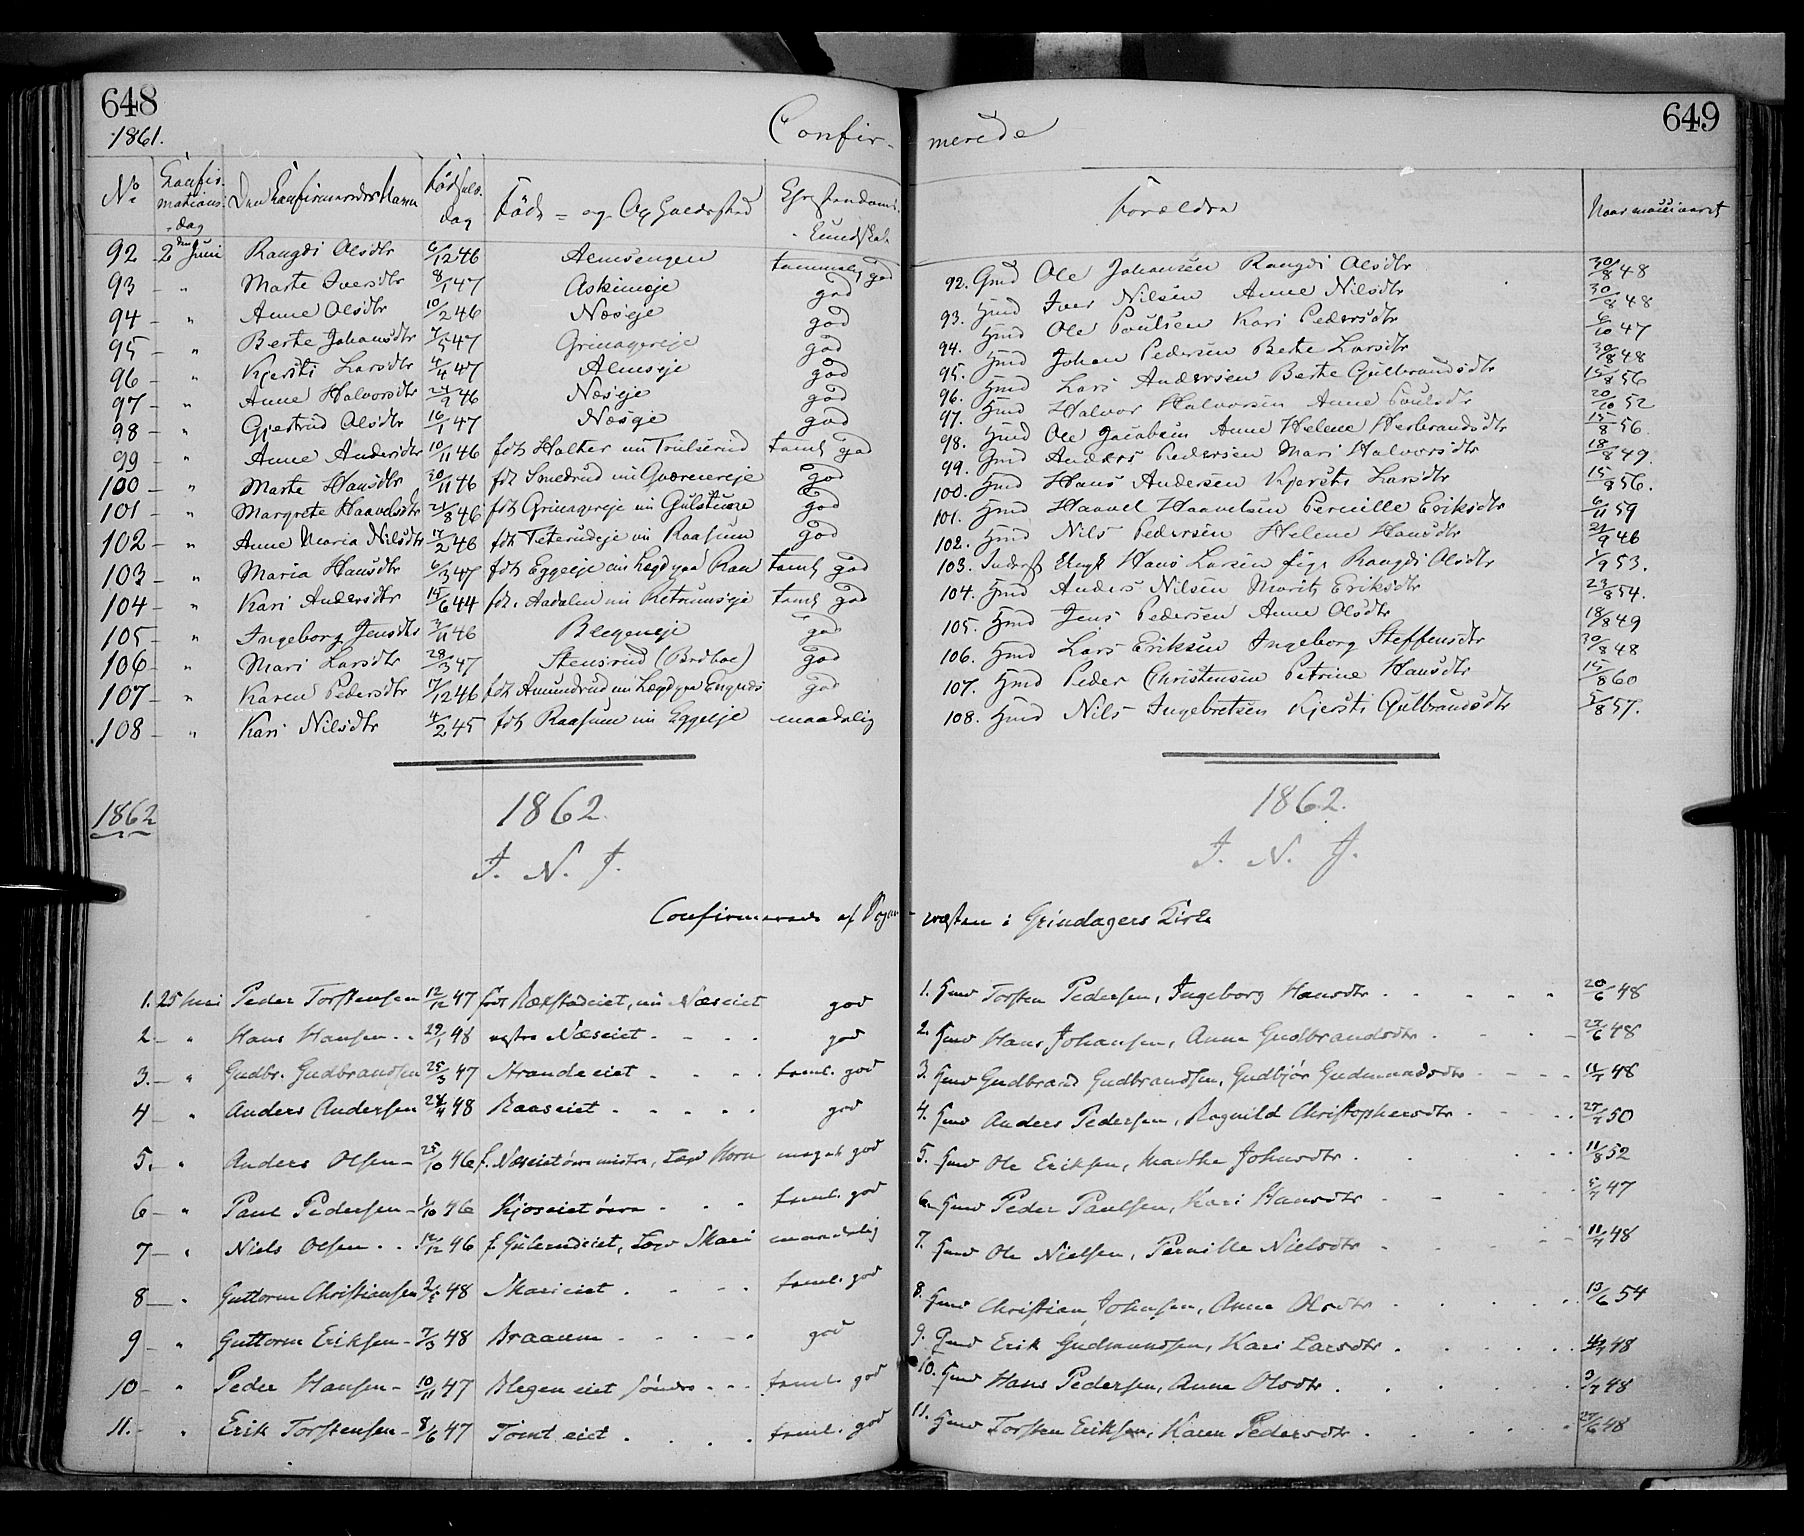 648
1861.
Confir-
No
Confirmationsdag
Den Confirmeredes Navn
Fødselsdag
Føde- og Opholdssted
Christendoms-Kundskab
92 2den Juni Rangdi Olsdtr 6/12 46 Almsengen temmelig god
93 " Marte Iversdtr 8/1 47 Askimeje god
94 " Anne Olsdtr 10/2 46 Næseje god
95 " Berte Johansdtr 7/5 47 Grinagereje god
96 " Kjersti Larsdtr 4/4 47 Almseje god
97 " Anne Halvorsdtr 24/9 46 Næseje god
98 " Gjertrud Olsdtr 16/1 47 Næseje god
99 " Anne Andersdtr 10/11 46 fdt Halter nu Trulserud teml god
100 " Marte Hansdtr 30/11 46 fdt Smedrud nu god
101 " Margrete Haavelsdtr 21/8 46 fdt Grinagereje nu god
102 " Anne Maria Nilsdtr 17/2 46 fdt Teterudeje nu Raasum god
103 " Maria Hansdtr 6/3 47 fdt Eggeeje nu Lægd paa teml god
104 " Kari Andersdtr 15/6 44 fdt Aadalen nu Retrumseje teml god
105 " Ingeborg Jensdtr 3/11 46 Blegeneje god
106 " Mari Larsdtr 28/3 47 Stensrud god
107 " Karen Pedersdtr 17/12 46 fdt Amundrud nu Lægd paa god
108 " Kari Nilsdtr 4/2 45 fdt Raasum nu Eggeeje maadelig
1862
1862.
I. N. J.
Confirmerede af Pogn-
1. 25 Mai Peder Torstensen 12/12 47 født Rækstadeiet, nu Næseiet god
2 " Hans Hansen 29/1 48 vestre Næseiet god
3 " Gudbr. Gudbrandsen 25/3 47 Strandeeiet teml. god
4 " Anders Andersen 24/4 48 Raaseiet god
5. " Anders Olsen 25/10 46 f. Næseiet meget god
6 " Paul Pedersen 1/10 46 Kjoseiet øvre teml. god
7 " Niels Olsen 12/12 46 maadelig
8 " Guttorm Christiansen 48 Skarieiet teml. god
9 " Guttorm Eriksen 7/3 48 Braaum god
10 " Peder Hansen 10/11 47 Blegeneiet søndre teml. god
11. " Erik Torstensen 8/6 47 Tomteiet teml. god
649
merede
Forældre
Naar vaccineret
92. Gmd Ole Johansen Rangdi Olsdtr 30/8 48
93. Hmd Iver Nilsen Anne Nilsdtr 30/8 48
94. Hmd Ole Paulsen Kari Pedersdtr 6/10 47
95. Hmd Johan Pedersen Berte Larsdtr 30/8 48
96. Hmd Lars Andersen Berte Gulbrandsdtr 15/8 56
97. Hmd Halvor Halvorsen Anne Paulsdr 20/10 52
98. Hmd Ole Jacobsen Anne Helene Herbrandsdtr 15/8 56
99. Gmd Anders Pedersen Mari Halvorsdtr 18/8 49.
100. Hmd Hans Andersen Kjersti Larsdtr 15/8 56.
101. Hmd Haavel Haavelsen Pernille Eriksdtr 6/11 59
102. Hmd Nils Pedersen Helene Hansdtr 21/9 46
103. Inderst Hans Larsen pige Rangdi Olsdtr 1/9 53.
104. Hmd Anders Nilsen Marit Eriksdtr 23/8 54.
105. Hmd Jens Pedersen Anne Olsdtr 18/8 49
106. Hmd Lars Eriksen Ingeborg Steffensdtr 30/8 48
107. Hmd Peder Christensen Petrine Hansdtr 15/8 60
108. Hmd Nils Ingebretsen Kjersti Gulbrandsdtr 5/8 57.
1862.
I. N. J.
væsten i Grindagers Kirke
1. Hmd Torsten Pedersen, Ingeborg Hansdtr 20/6 48
2. Hmd Hans Johansen, Anne Gudbrandsdtr 27/6 48
3. Hmd Gudbrand Gudbrandsen, Gudbjør Gudmundsdtr 11/7 48
4. Hmd Anders Pedersen, Ragnild Christophersdtr 27/7 50
5. Hmd Ole Eriksen, Marthe Johnsdtr 11/8 52
6. Hmd Peder Paulsen, Kari Hansdtr 5/7 47
7. Hmd Ole Nielsen, Pernille Nielsdtr 11/7 48
8. Hmd Christian Johnsen, Anne Olsdtr 13/6 54
9. Gmd Erik Gudmundsen, Kari Larsdtr 48
10. Hmd Hans Pedersen, Anne Olsdtr 3/7 48
11. Hmd Torsten Eriksen, Karen Pedersdtr 27/6 48